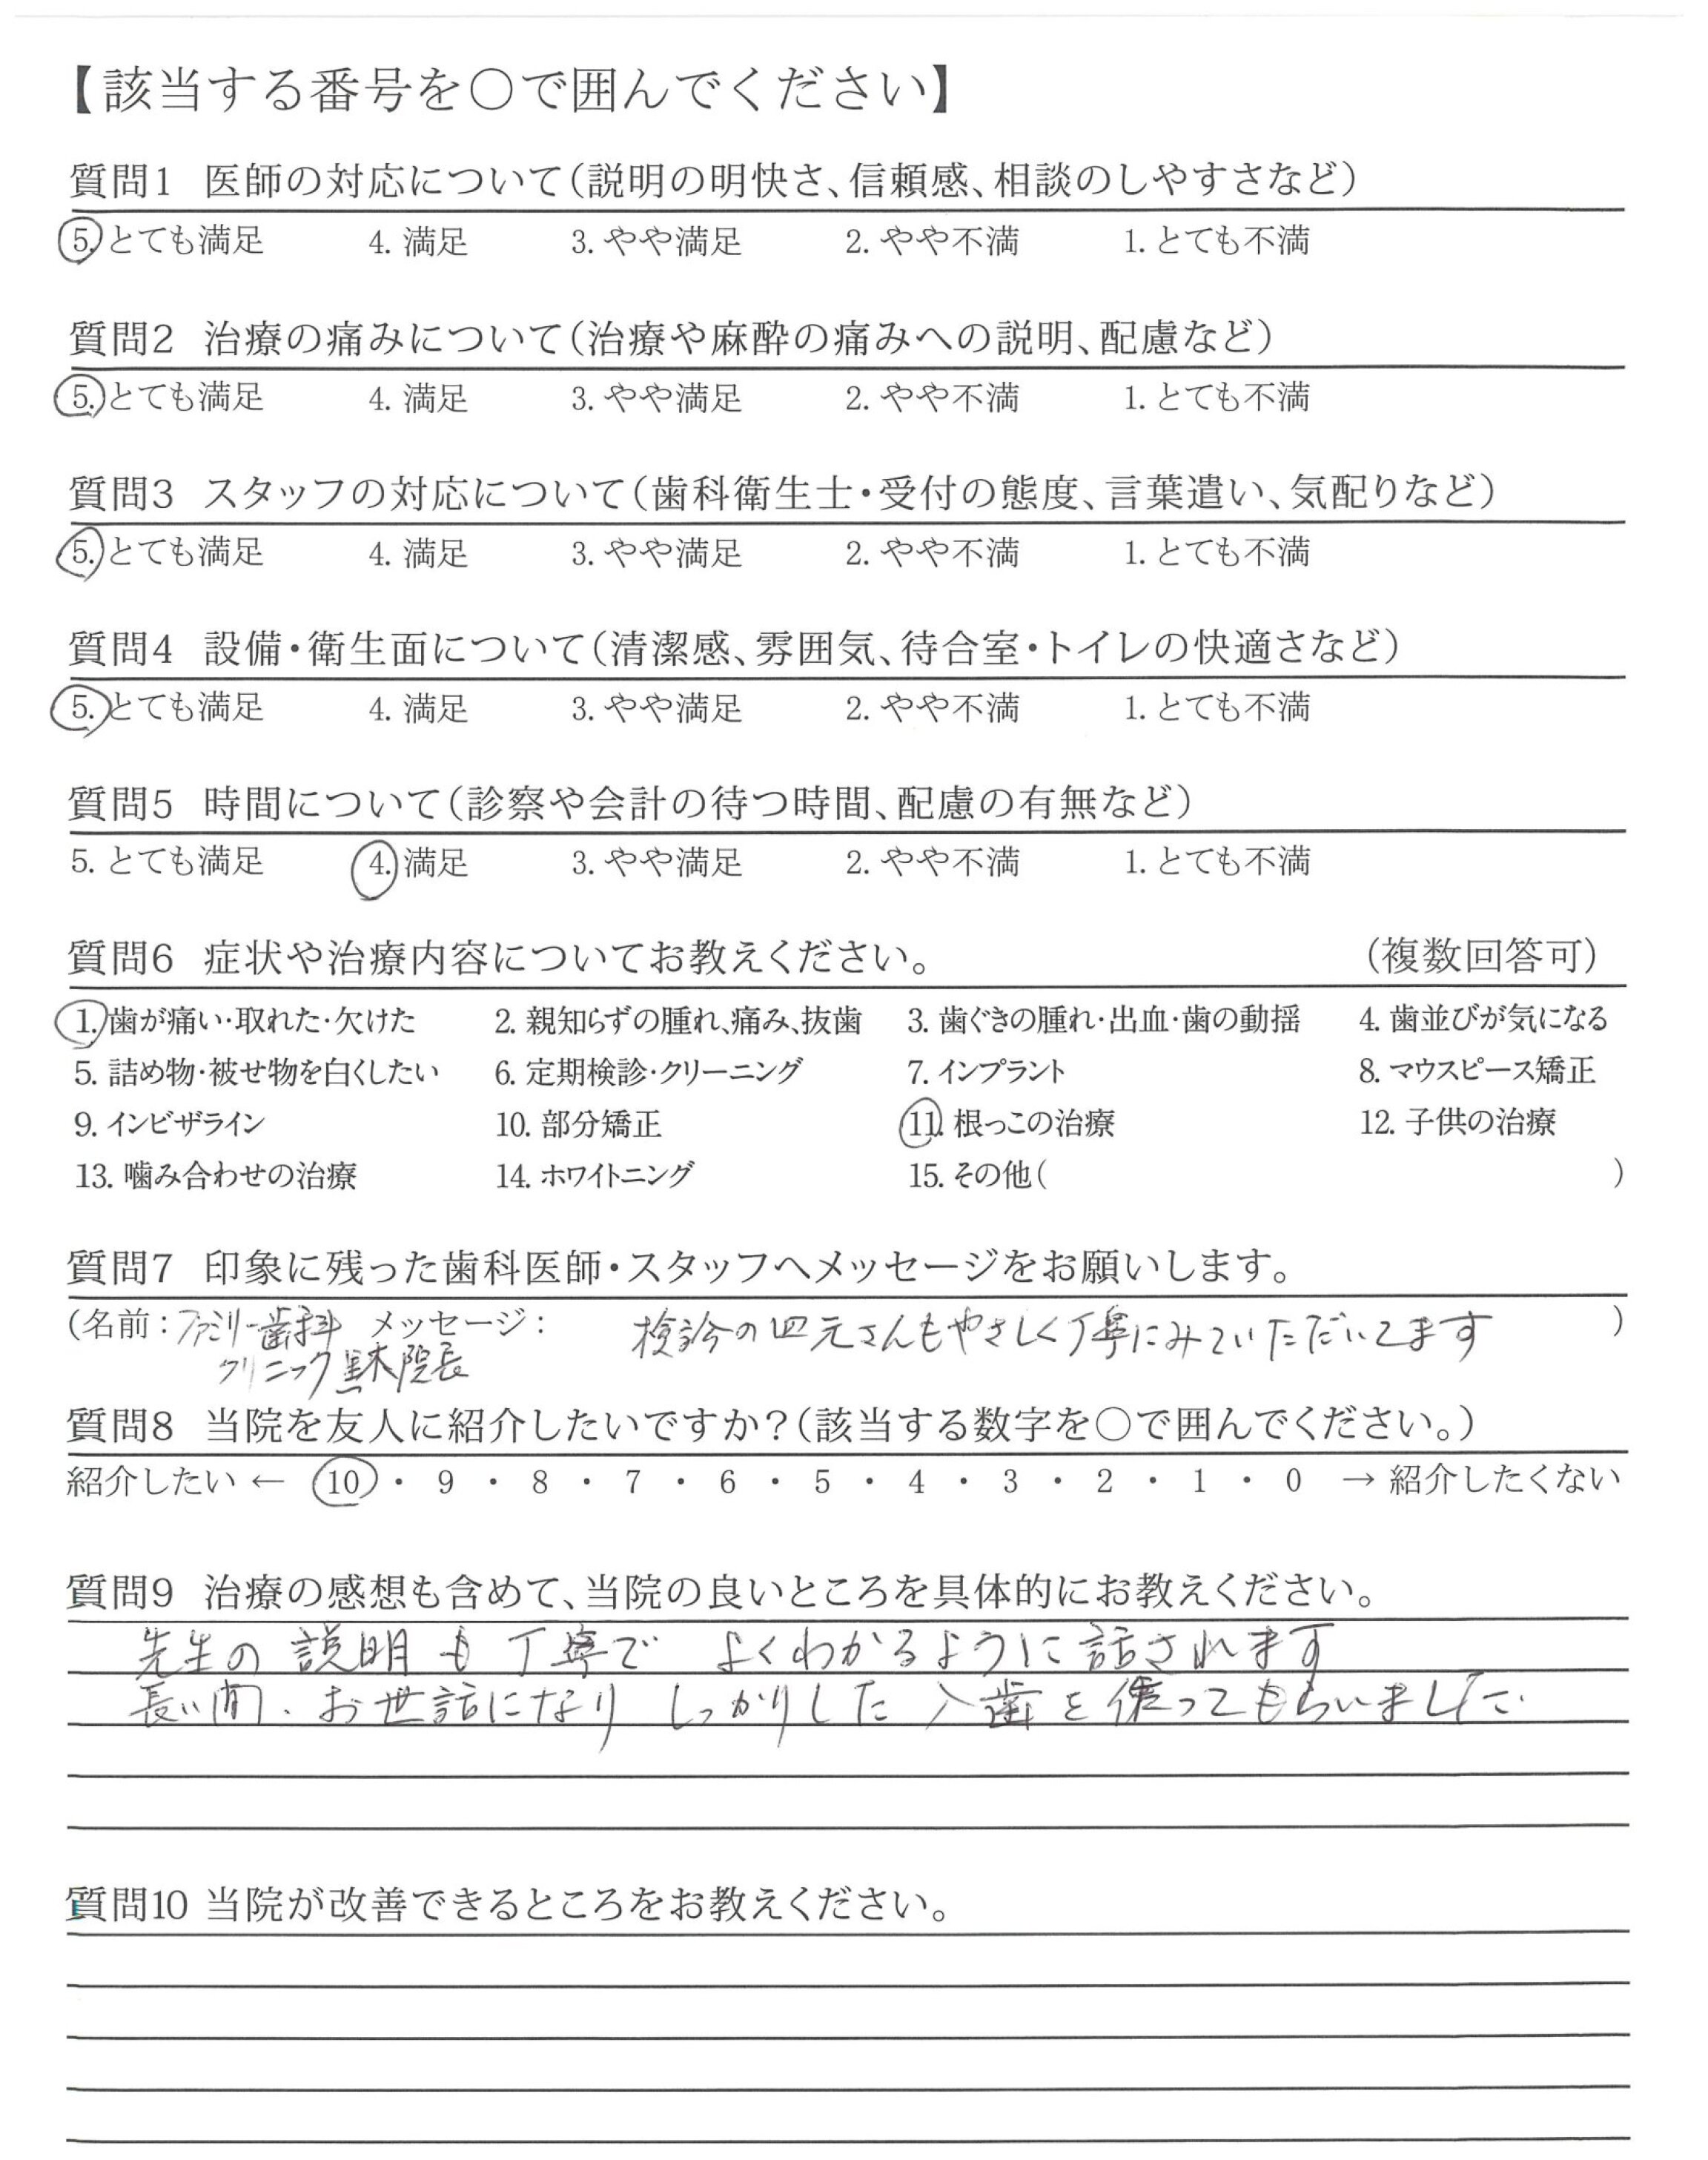 【該当する番号を○で囲んでください】
質問1 医師の対応について(説明の明快さ、信頼感、相談のしやすさなど)
5. とても満足 4. 満足 3. やや満足 2. やや不満 1. とても不満
質問2 治療の痛みについて(治療や麻酔の痛みへの説明、配慮など)
5. とても満足 4. 満足 3. やや満足 2. やや不満 1. とても不満
質問3 スタッフの対応について(歯科衛生士・受付の態度、言葉遣い、気配りなど)
5. とても満足 4. 満足 3. やや満足 2. やや不満 1. とても不満
質問4 設備・衛生面について(清潔感、雰囲気、待合室・トイレの快適さなど)
5. とても満足 4. 満足 3. やや満足 2. やや不満 1. とても不満
質問5 時間について(診察や会計の待つ時間、配慮の有無など)
5. とても満足 4. 満足 3. やや満足 2. やや不満 1. とても不満
質問6 症状や治療内容についてお教えください。 (複数回答可)
1. 歯が痛い・取れた・欠けた 2. 親知らずの腫れ、痛み、抜歯 3. 歯ぐきの腫れ・出血・歯の動揺 4. 歯並びが気になる
5. 詰め物・被せ物を白くしたい 6. 定期検診・クリーニング 7. インプラント 8. マウスピース矯正
9. インビザライン 10. 部分矯正 11. 根っこの治療 12. 子供の治療
13. 噛み合わせの治療 14. ホワイトニング 15. その他( )
質問7 印象に残った歯科医師・スタッフへメッセージをお願いします。
(名前：ファミリー歯科 メッセージ： 検診の四元さんもやさしく丁寧にみていただいてます )
クリニック 黒木院長
質問8 当院を友人に紹介したいですか?(該当する数字を○で囲んでください。)
紹介したい ← 10 ・ 9 ・ 8 ・ 7 ・ 6 ・ 5 ・ 4 ・ 3 ・ 2 ・ 1 ・ 0 → 紹介したくない
質問9 治療の感想も含めて、当院の良いところを具体的にお教えください。
先生の説明も丁寧で よくわかるように話されます
長い間、お世話になり しっかりした入歯を作ってもらいました
質問10 当院が改善できるところをお教えください。